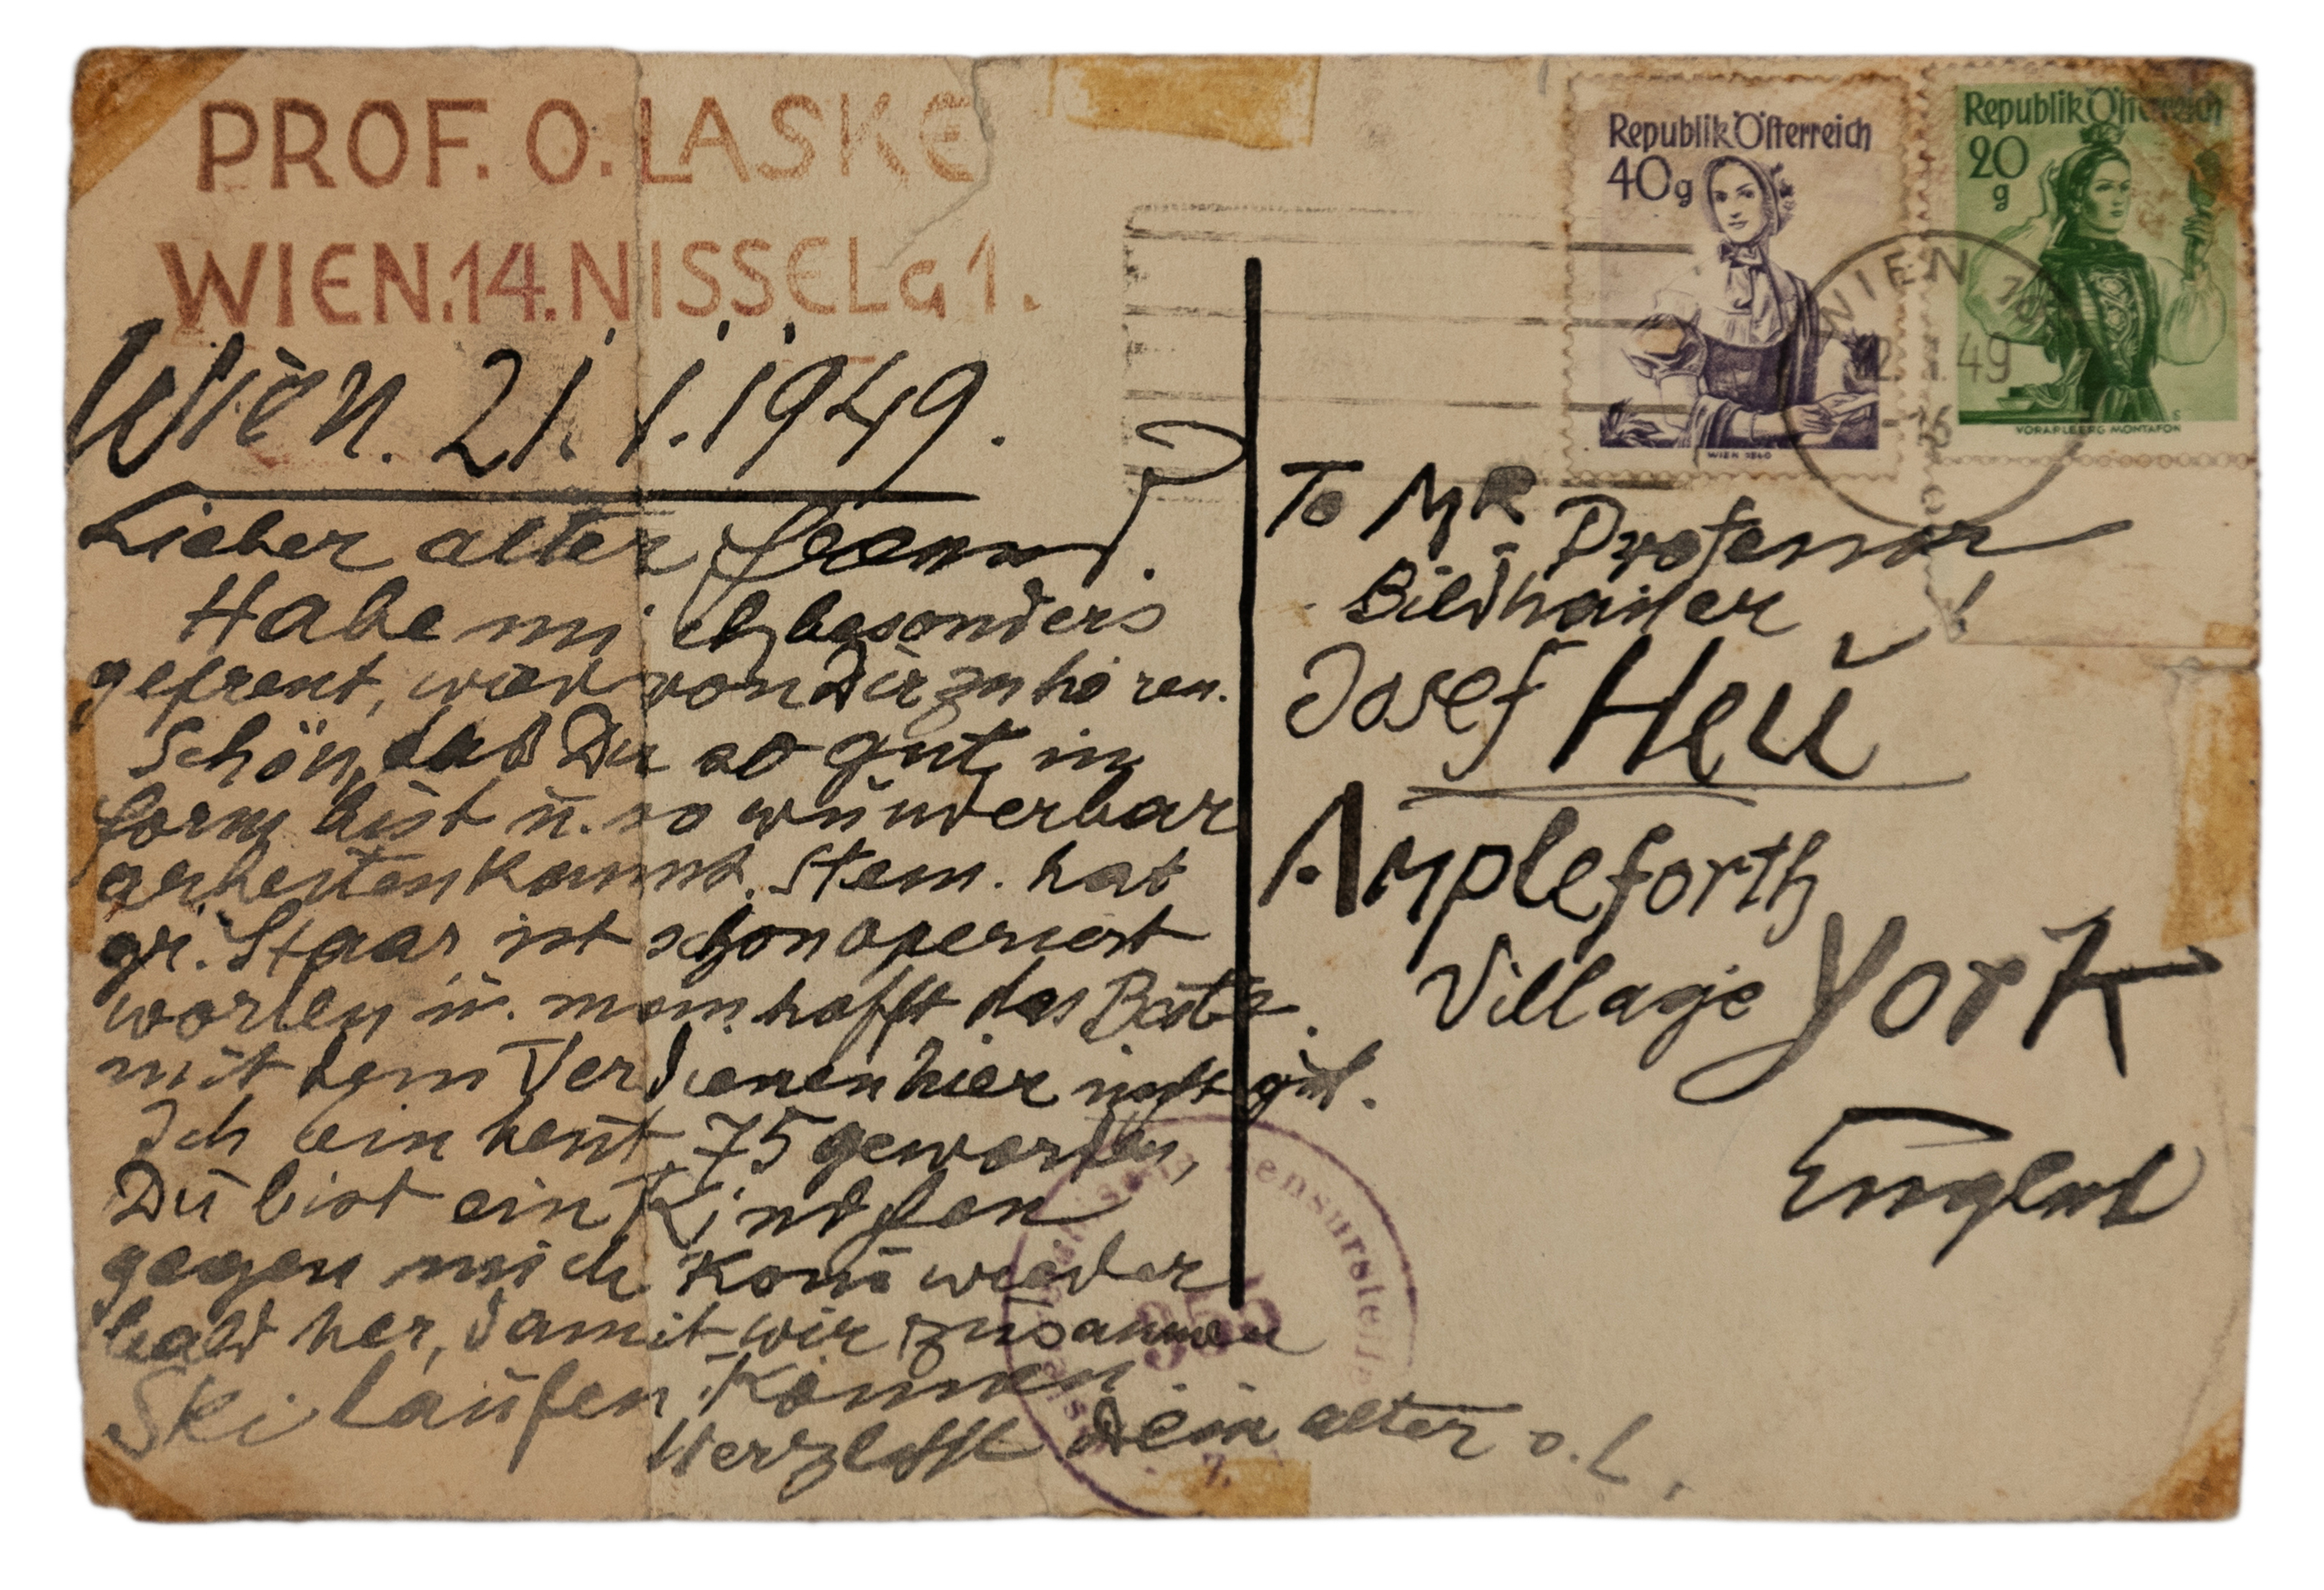 PROF. O. LASKE
WIEN.14.NISSELG 1.
Wien. 21. 1. 1949.
Lieber alter Freund.
Habe mich besonders
gefreut, wied von Dir zu hören.
Schön, daß Du so gut in
form bist u. so wunderbar
arbeiten kannst. Stem. hat
gr. Staar, ist schon operiert
worden u. man hofft das Beste.
mit dem Verdienen hier nicht gut.
Ich bin heut 75 geworden,
Du bist ein Kind
gegen mich Kom̄ wieder
bald her, damit wir zusammen
Ski laufen können
Herzlichst Dein alter O. L.
Republik Österreich
40g
WIEN 1840
Republik Österreich
20
g
VORARLBERG MONTAFON
WIEN
49
To MR. Professor
Bildhauer
Josef Heu
Ampleforth
Village York
England
Zensurstelle
7.